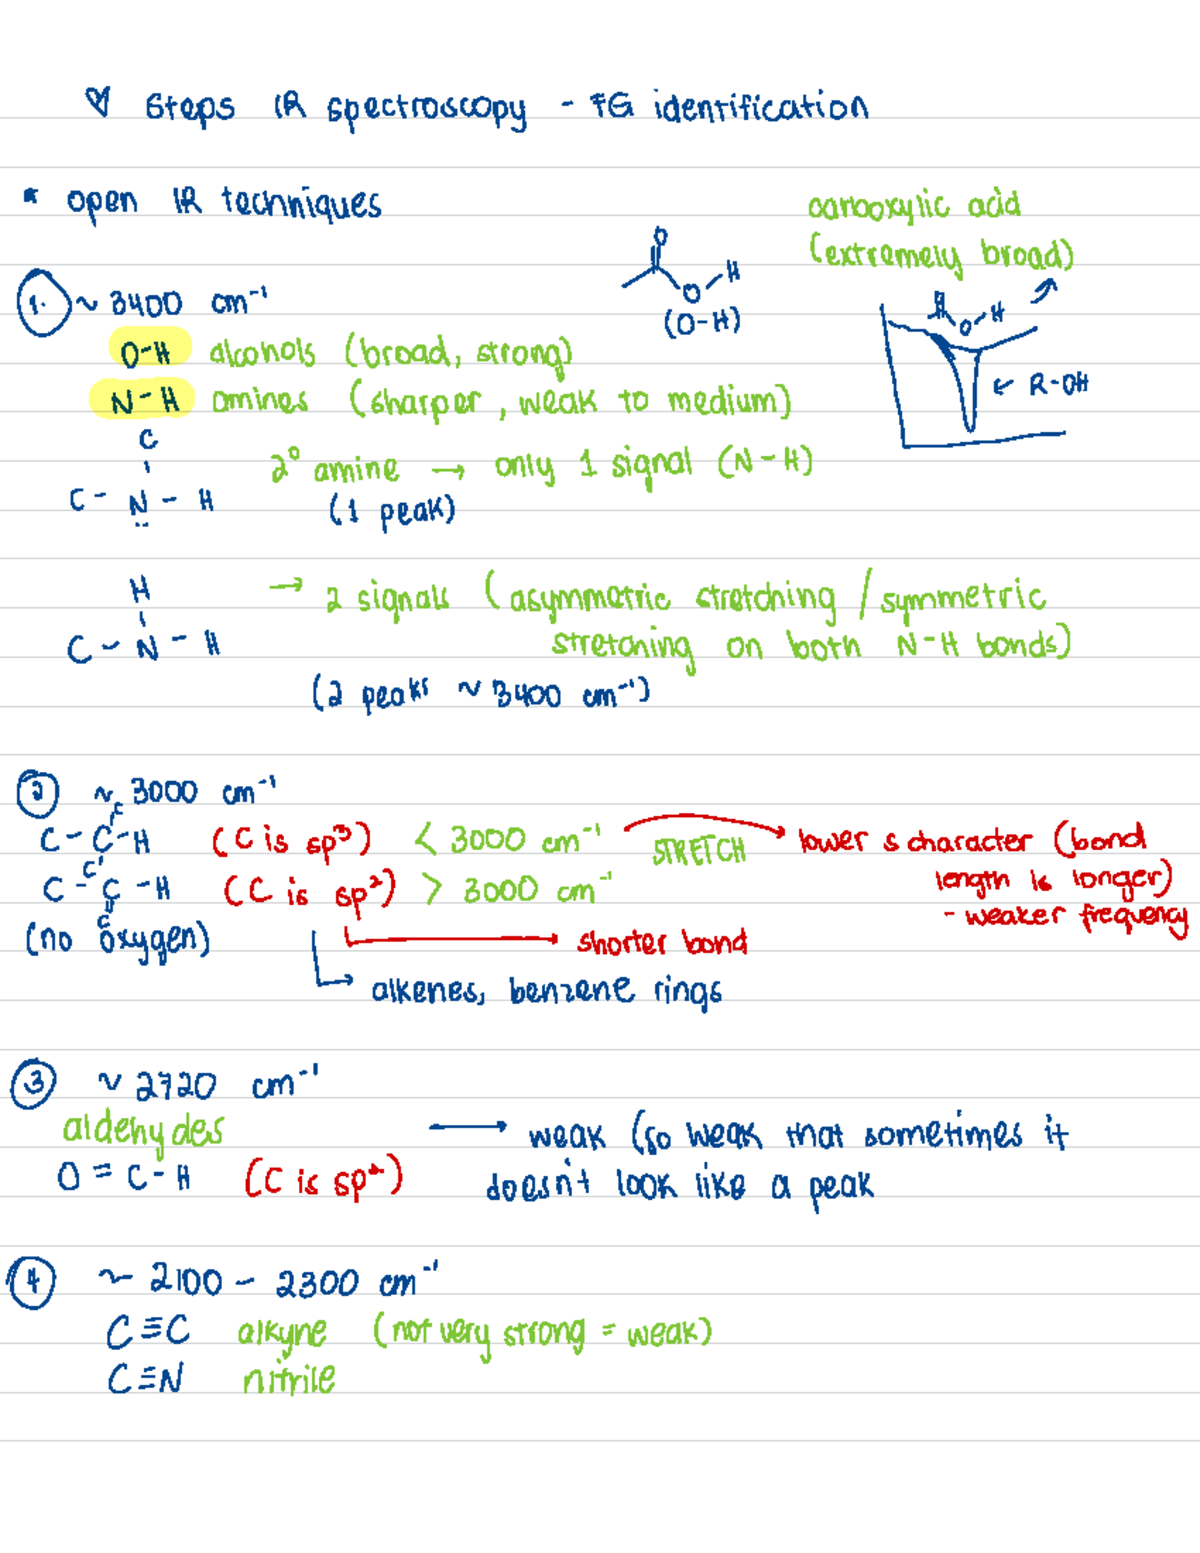 ♡ Steps IR spectroscopy - FG identification
* open IR techniques
carboxylic acid
(extremely broad)
O
O H
(O-H)
O H
← R-OH
1. ~ 3400 cm⁻¹
O-H alcohols (broad, strong)
N-H amines (sharper, weak to medium)
C
C - N - H
2° amine → only 1 signal (N-H)
(1 peak)
H
C - N - H
→ 2 signals (asymmetric stretching / symmetric
stretching on both N-H bonds)
(2 peaks ~ 3400 cm⁻¹)
2 ~ 3000 cm⁻¹
C
C - C - H (C is sp³) < 3000 cm⁻¹ STRETCH → lower s character (bond
length is longer)
- weaker frequency
C
C - C - H (C is sp²) > 3000 cm⁻¹
C
(no oxygen)
→ shorter bond
→ alkenes, benzene rings
3 ~ 2720 cm⁻¹
aldehydes → weak (so weak that sometimes it
doesn't look like a peak
O = C - H (C is sp²)
4 ~ 2100 - 2300 cm⁻¹
C≡C alkyne (not very strong = weak)
C≡N nitrile